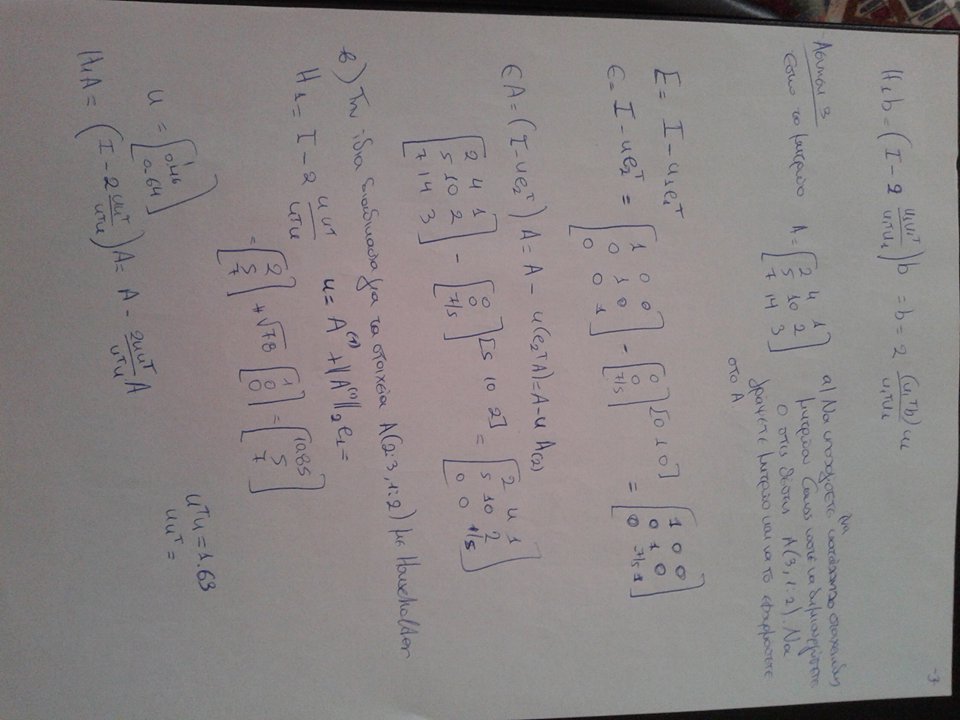 -3-
H₁b = (I - 2 u₁u₁ᵀ/u₁ᵀu₁)b = b - 2 (u₁ᵀb)u₁/u₁ᵀu₁
Άσκηση 3
Έστω το μητρώο A = [2 4 1; 5 10 2; 7 14 3]
α) Να υπολογίσετε ένα κατάλληλο στοιχειώδη
μητρώο Gauss ώστε να δημιουργήσετε
0 στις θέσεις A(3,1:2). Να
γράψετε μητρώο και να το εφαρμόσετε
στο A
E = I - u₁e₁ᵀ
E = I - ue₂ᵀ = [1 0 0; 0 1 0; 0 0 1] - [0; 0; 7/5][0 1 0] = [1 0 0; 0 1 0; 0 7/5 1]
EA = (I - ue₂ᵀ)A = A - u(e₂ᵀA) = A - uA(2)
[2 4 1; 5 10 2; 7 14 3] - [0; 0; 7/5][5 10 2] = [2 4 1; 5 10 2; 0 0 1/5]
β) Την ίδια διαδικασία για τα στοιχεία A(2:3, 1:2) με Householder
H₁ = I - 2 uuᵀ/uᵀu   u = A⁽¹⁾ + ||A⁽¹⁾||₂e₁ =
= [2; 5; 7] + √78 [1; 0; 0] = [10.85; 5; 7]
u = [1; 0.46; 0.64]
uᵀu = 1.63
uuᵀ =
H₁A = (I - 2 uuᵀ/uᵀu)A = A - 2uuᵀ/uᵀu A